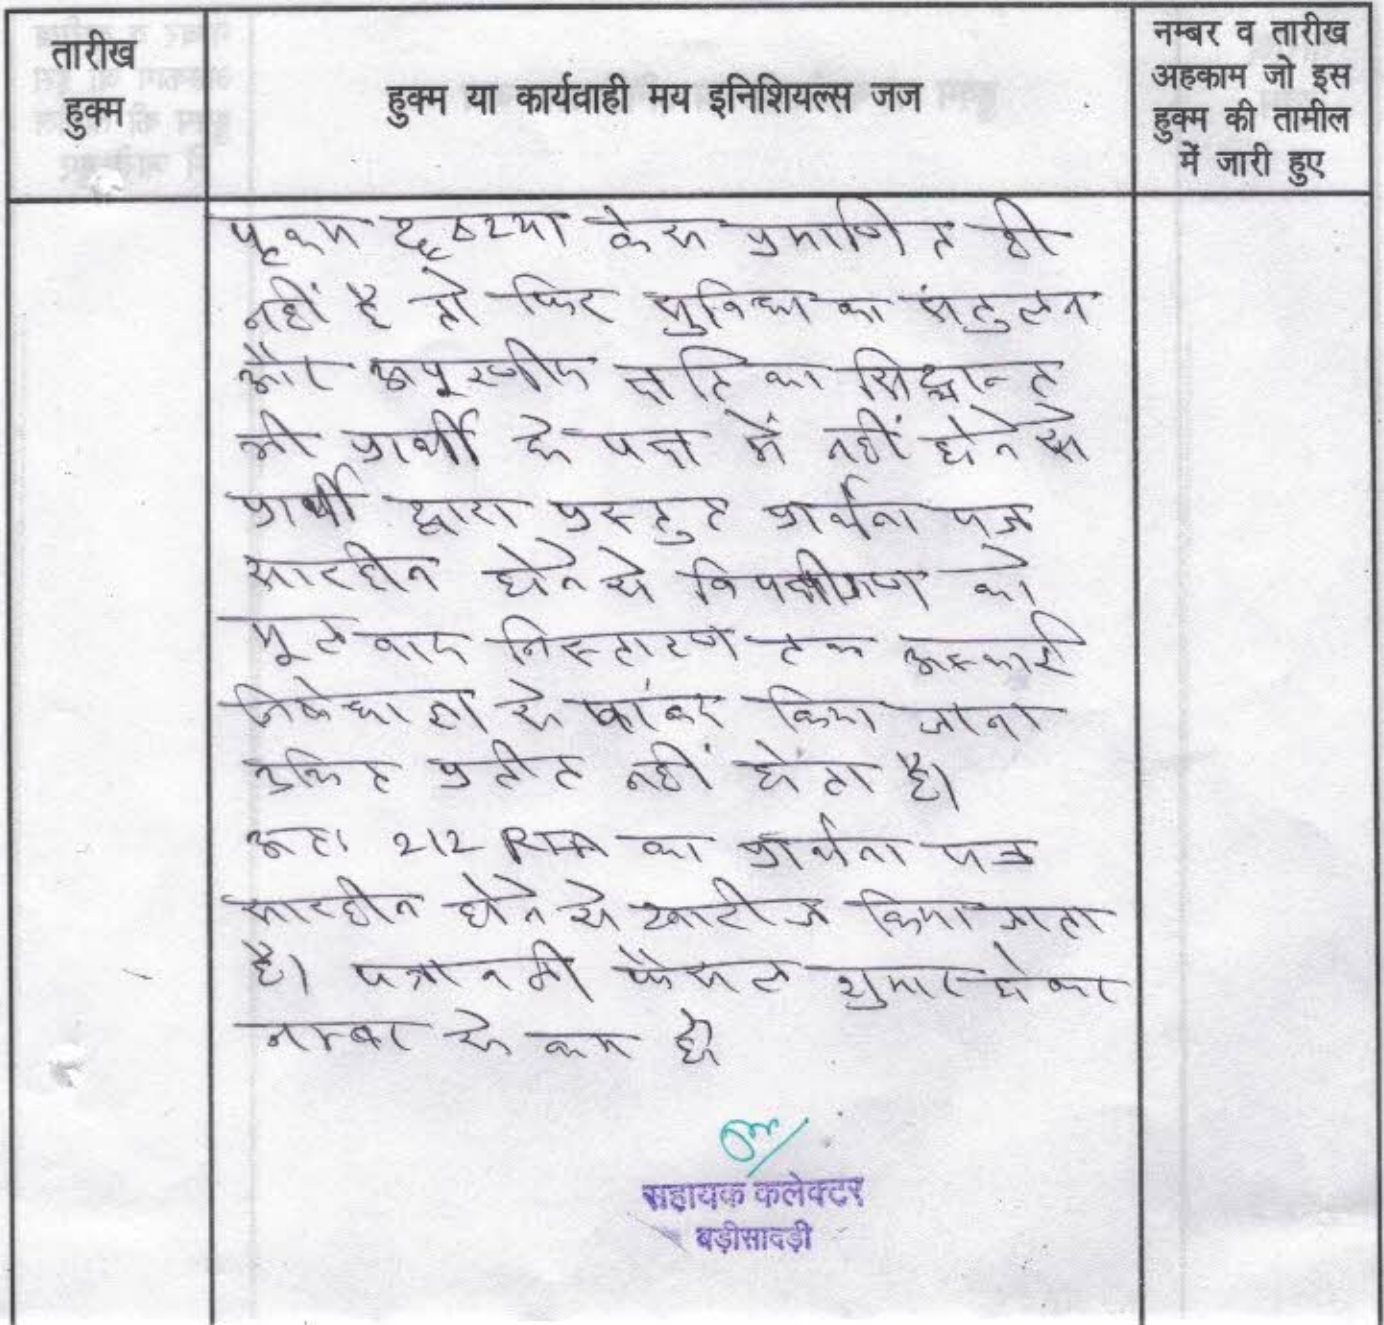 तारीख
हुक्म
हुक्म या कार्यवाही मय इनिशियल्स जज
नम्बर व तारीख
अहकाम जो इस
हुक्म की तामील
में जारी हुए
प्रथम दृष्टया केस प्रमाणित ही
नहीं है तो फिर सुविधा का संतुलन
और अपूरणीय क्षति का सिद्धान्त
भी प्रार्थी के पक्ष में नहीं होने से
प्रार्थी द्वारा प्रस्तुत प्रार्थना पत्र
सारहीन होने से विपक्षीगण को
मूल वाद निस्तारण तक अस्थाई
निषेधाज्ञा से पाबंद किया जाना
उचित प्रतीत नहीं होता है।
अतः 212 RTA का प्रार्थना पत्र
सारहीन होने से खारीज किया जाता
है। पत्रावली फैसल शुमार होकर
नम्बर से कम हो
सहायक कलेक्टर
बड़ीसादड़ी